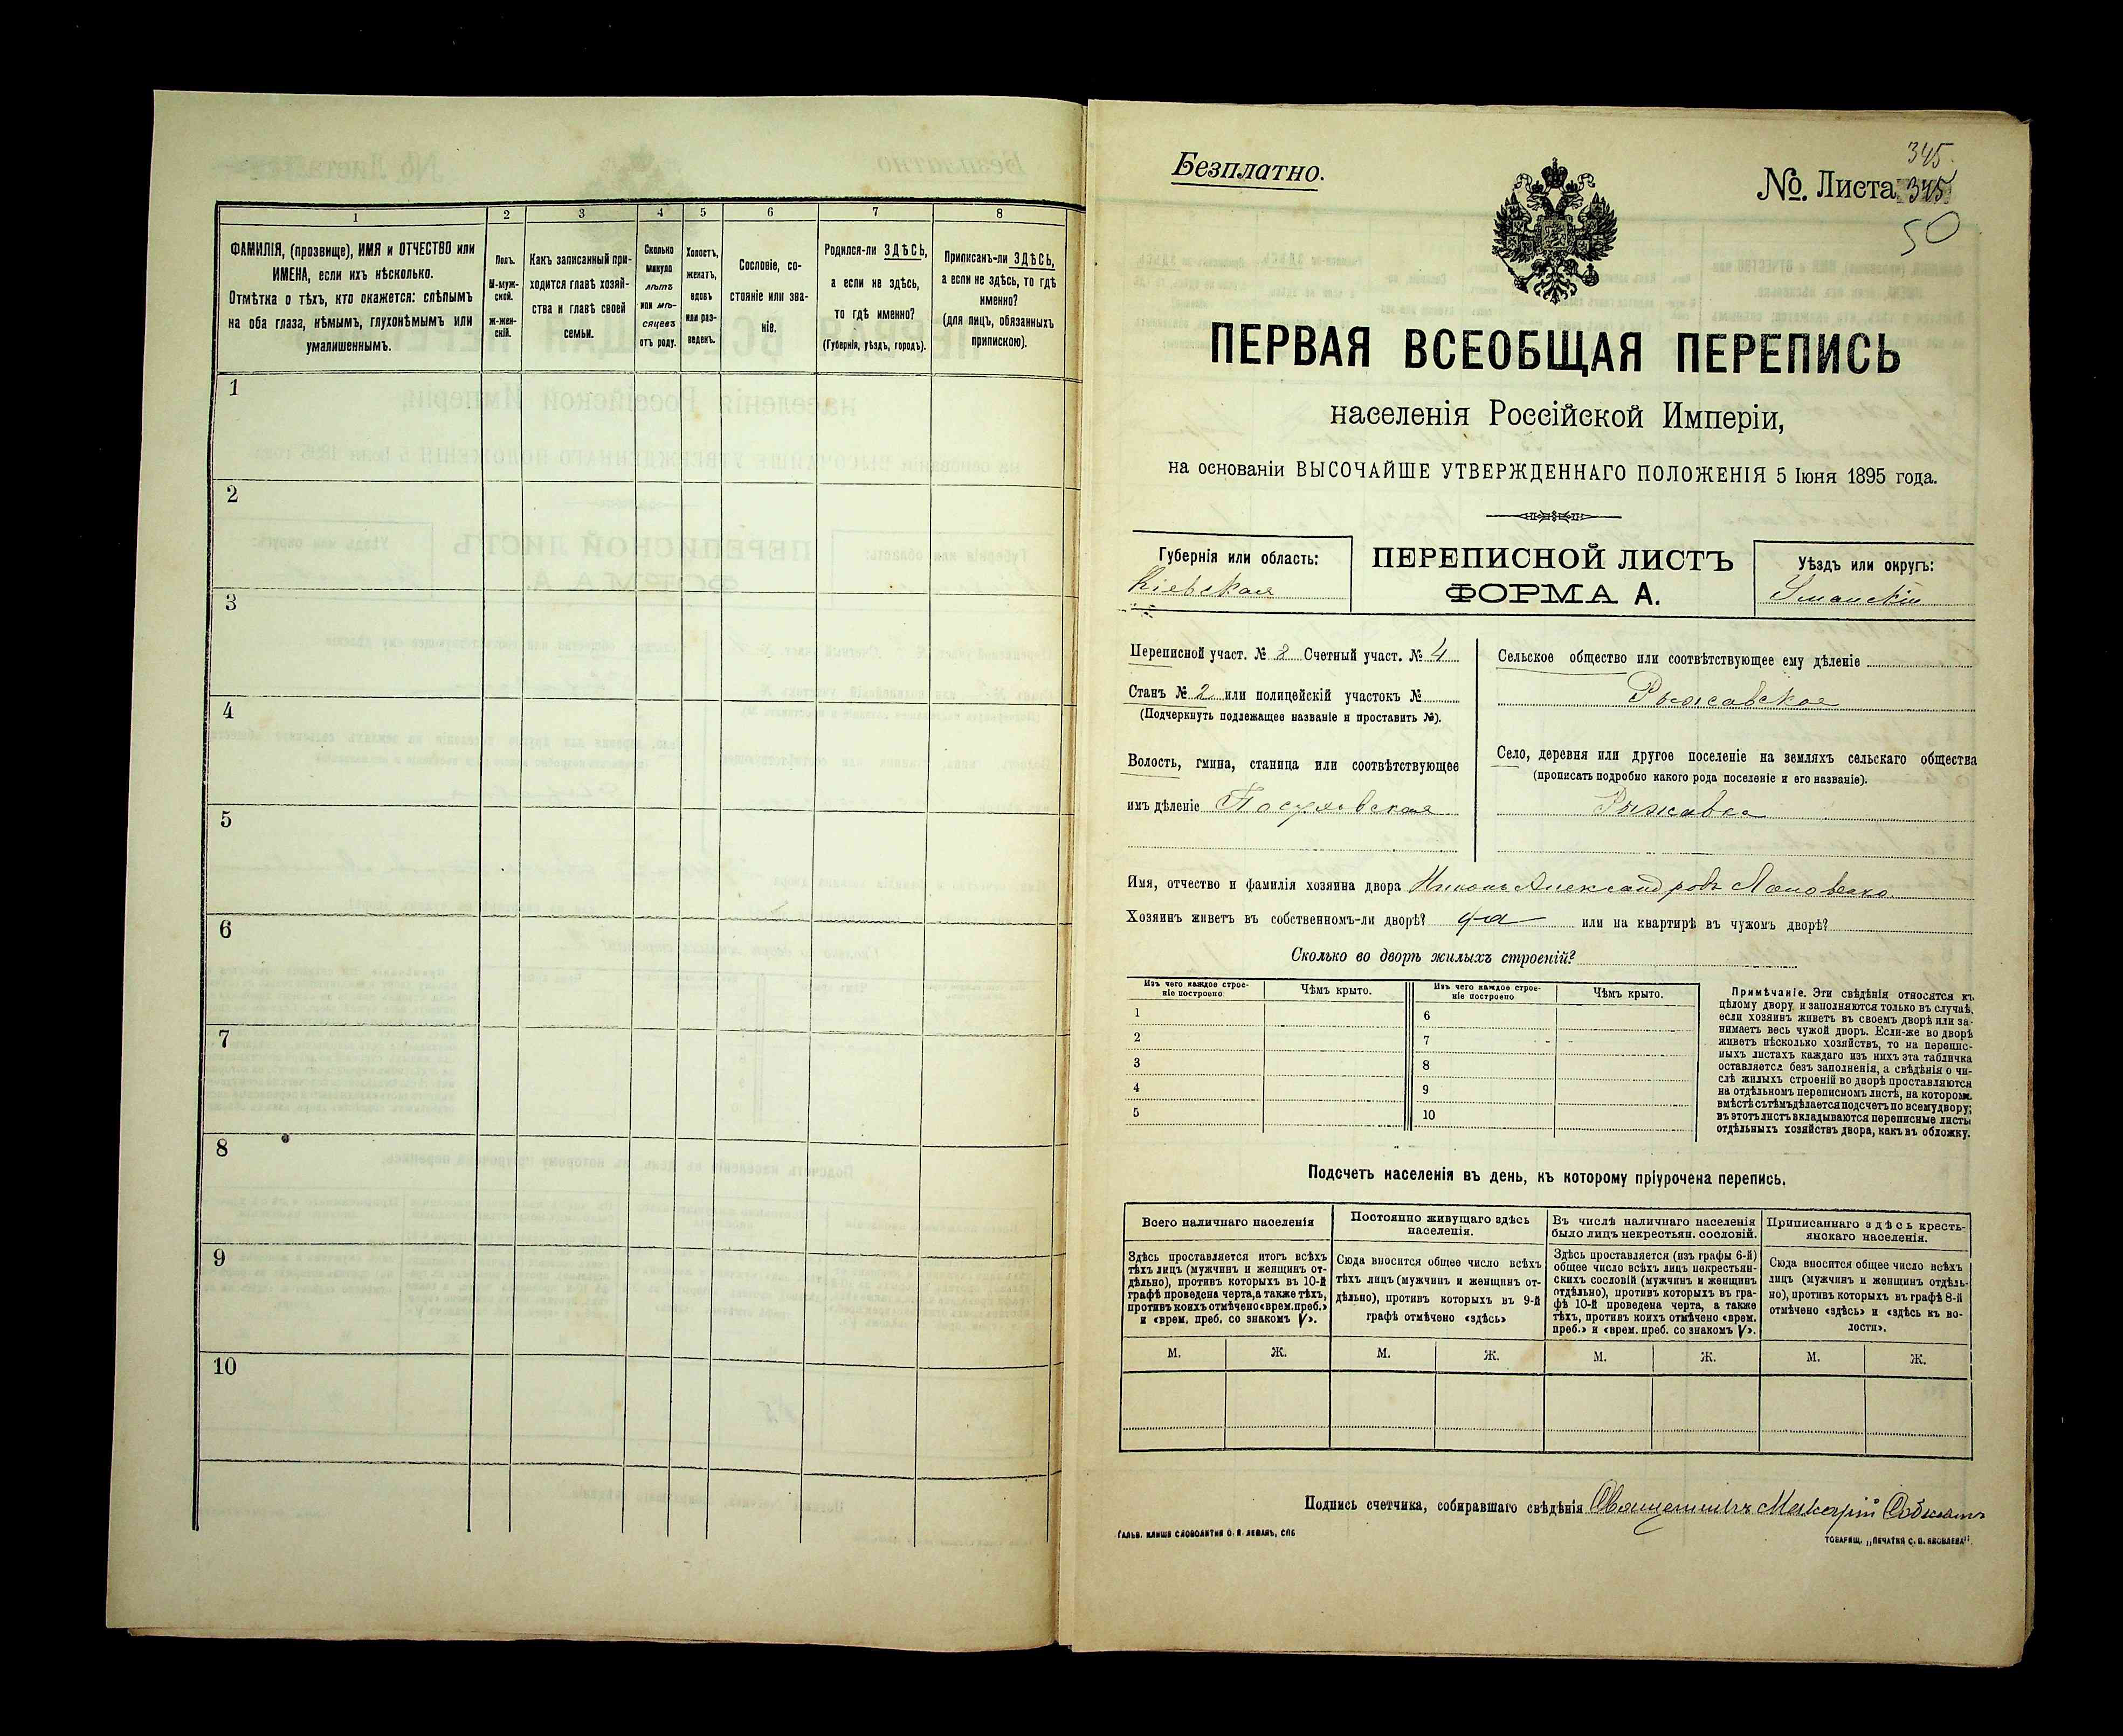 1 2 3 4 5 6 7 8
ФАМИЛІЯ, (прозвище), ИМЯ и ОТЧЕСТВО или
ИМЕНА, если ихъ нѣсколько.
Отмѣтка о тѣхъ, кто окажется: слѣпымъ
на оба глаза, нѣмымъ, глухонѣмымъ или
умалишеннымъ.
Полъ.
М-муж-
ской.
Ж-жен-
скій.
Какъ записанный при-
ходится главѣ хозяй-
ства и главѣ своей
семьи.
Сколько
минуло
лѣтъ
или мѣ-
сяцевъ
отъ роду.
Холостъ,
женатъ,
вдовъ
или раз-
веденъ.
Сословіе, со-
стояніе или зва-
ніе.
Родился-ли ЗДѢСЬ,
а если не здѣсь,
то гдѣ именно?
(Губернія, уѣздъ, городъ).
Приписанъ-ли ЗДѢСЬ,
а если не здѣсь, то гдѣ
именно?
(для лицъ, обязанныхъ
припискою).
1
2
3
4
5
6
7
8
9
10
345.
Безплатно.
№. Листа 345
50
ПЕРВАЯ ВСЕОБЩАЯ ПЕРЕПИСЬ
населенія Россійской Имперіи,
на основаніи ВЫСОЧАЙШЕ УТВЕРЖДЕННАГО ПОЛОЖЕНІЯ 5 Іюня 1895 года.
Губернія или область:
Кіевская
ПЕРЕПИСНОЙ ЛИСТЪ
ФОРМА А.
Уѣздъ или округъ:
Уманскій
Переписной участ. № 2 Счетный участ. № 4
Станъ № 2 или полицейскій участокъ №
(Подчеркнуть подлежащее названіе и проставить №).
Волость, гмина, станица или соотвѣтствующее
имъ дѣленіе
Сельское общество или соотвѣтствующее ему дѣленіе
Рыжавское
Село, деревня или другое поселеніе на земляхъ сельскаго общества
(прописать подробно какого рода поселеніе и его названіе).
Рыжавка
Имя, отчество и фамилія хозяина двора Александровъ
Хозяинъ живетъ въ собственномъ-ли дворѣ? да или на квартирѣ въ чужомъ дворѣ?
Сколько во дворѣ жилыхъ строеній?
Изъ чего каждое строе-
ніе построено
Чѣмъ крыто.
Изъ чего каждое строе-
ніе построено
Чѣмъ крыто.
1 6
2 7
3 8
4 9
5 10
Примѣчаніе. Эти свѣдѣнія относятся къ
цѣлому двору и заполняются только въ случаѣ,
если хозяинъ живетъ въ своемъ дворѣ или за-
нимаетъ весь чужой дворъ. Если-же во дворѣ
живетъ нѣсколько хозяйствъ, то на перепис-
ныхъ листахъ каждаго изъ нихъ эта табличка
оставляется безъ заполненія, а свѣдѣнія о чи-
слѣ жилыхъ строеній во дворѣ проставляются
на отдѣльномъ переписномъ листѣ, на которомъ
вмѣстѣ съ тѣмъ дѣлается подсчетъ по всему двору;
въ этотъ листъ вкладываются переписные листы
отдѣльныхъ хозяйствъ двора, какъ въ обложку.
Подсчетъ населенія въ день, къ которому пріурочена перепись.
Всего наличнаго населенія
Здѣсь проставляется итогъ всѣхъ
тѣхъ лицъ (мужчинъ и женщинъ от-
дѣльно), противъ которыхъ въ 10-й
графѣ проведена черта, а также тѣхъ,
противъ коихъ отмѣчено «врем. преб.»
и «врем. преб. со знакомъ V».
Постоянно живущаго здѣсь
населенія.
Сюда вносится общее число всѣхъ
тѣхъ лицъ (мужчинъ и женщинъ от-
дѣльно), противъ которыхъ въ 9-й
графѣ отмѣчено «здѣсь»
Въ числѣ наличнаго населенія
было лицъ некрестьян. сословій.
Здѣсь проставляется (изъ графы 6-й)
общее число всѣхъ лицъ некрестьян-
скихъ сословій (мужчинъ и женщинъ
отдѣльно), противъ которыхъ въ гра-
фѣ 10-й проведена черта, а также
тѣхъ, противъ коихъ отмѣчено «врем.
преб.» и «врем. преб. со знакомъ V».
Приписаннаго здѣсь кресть-
янскаго населенія.
Сюда вносится общее число всѣхъ
лицъ (мужчинъ и женщинъ отдѣль-
но), противъ которыхъ въ графѣ 8-й
отмѣчено «здѣсь» и «здѣсь къ во-
лости».
М. Ж. М. Ж. М. Ж. М. Ж.
Подпись счетчика, собиравшаго свѣдѣнія Священникъ Макарій
ГАЛЬВ. КЛИШЕ СЛОВОЛИТНИ О. И. ЛЕМАНЪ, СПБ
ТОВАРИЩ. „ПЕЧАТНЯ С. П. ЯКОВЛЕВА".